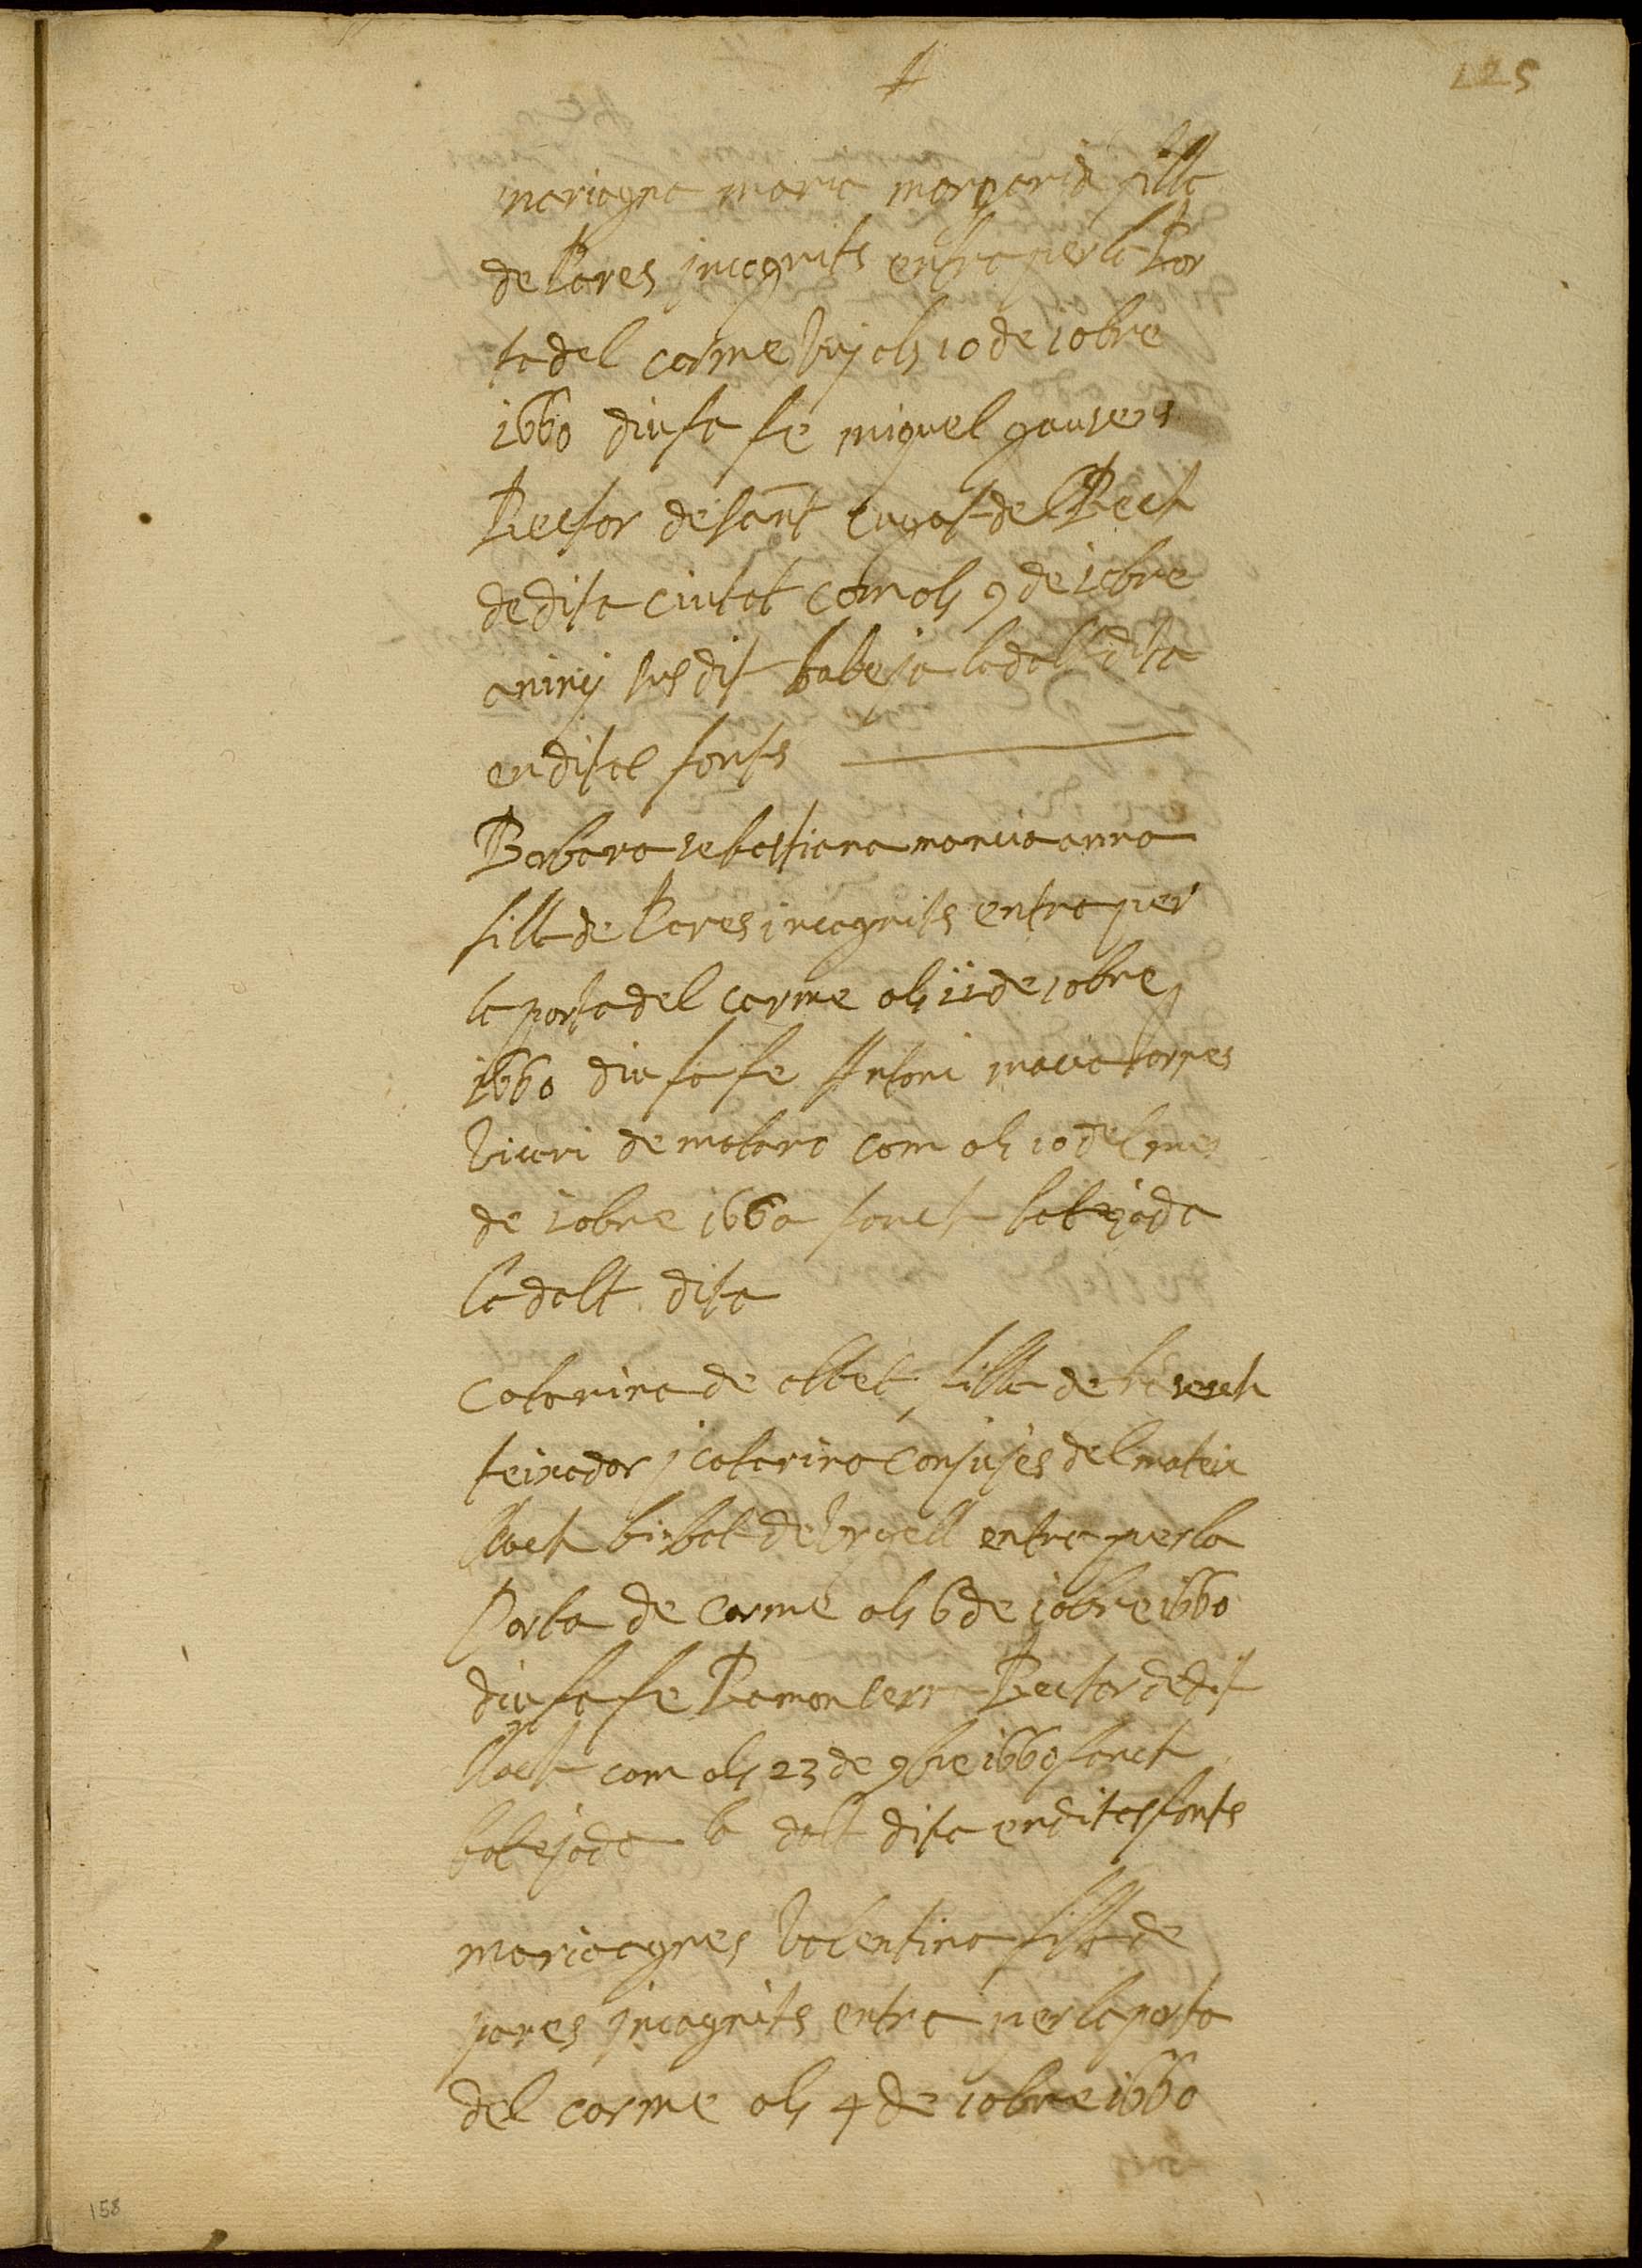 125
mariagna maria margarida filla
de Pares jncognits entra per la Por
ta del carme Vuj als 10 de 10bre
1660 diu fa fe miquel gausers
Rector de sant cugat del Rech
de dita ciutat com als 9 de 10bre
anny sus dit bateja la dalt dita
en dites fonts
Barbara sebastiana maria anna
filla de Pares incognits entra per
la porta del carme als 11 de 10bre
1660 diu fa fe Antoni macia torres
Vicari de mataro com als 10 del mes
de 10bre 1660 fonch batejada
la dalt dita
Catarina de albet filla de
teixador j catarina conjujes del mateix
lloch bisbat de Vrgell entra per la
Porta de carme als 6 de 10bre 1660
diu fa fe Ramon cerr Rector de dit
lloch com als 23 de 9bre 1660 fonch
batejada la dalt dita en dites fonts
maria agnes Valentina filla de
pares jncognits entra per la porta
del carme als 4 de 10bre 1660
158